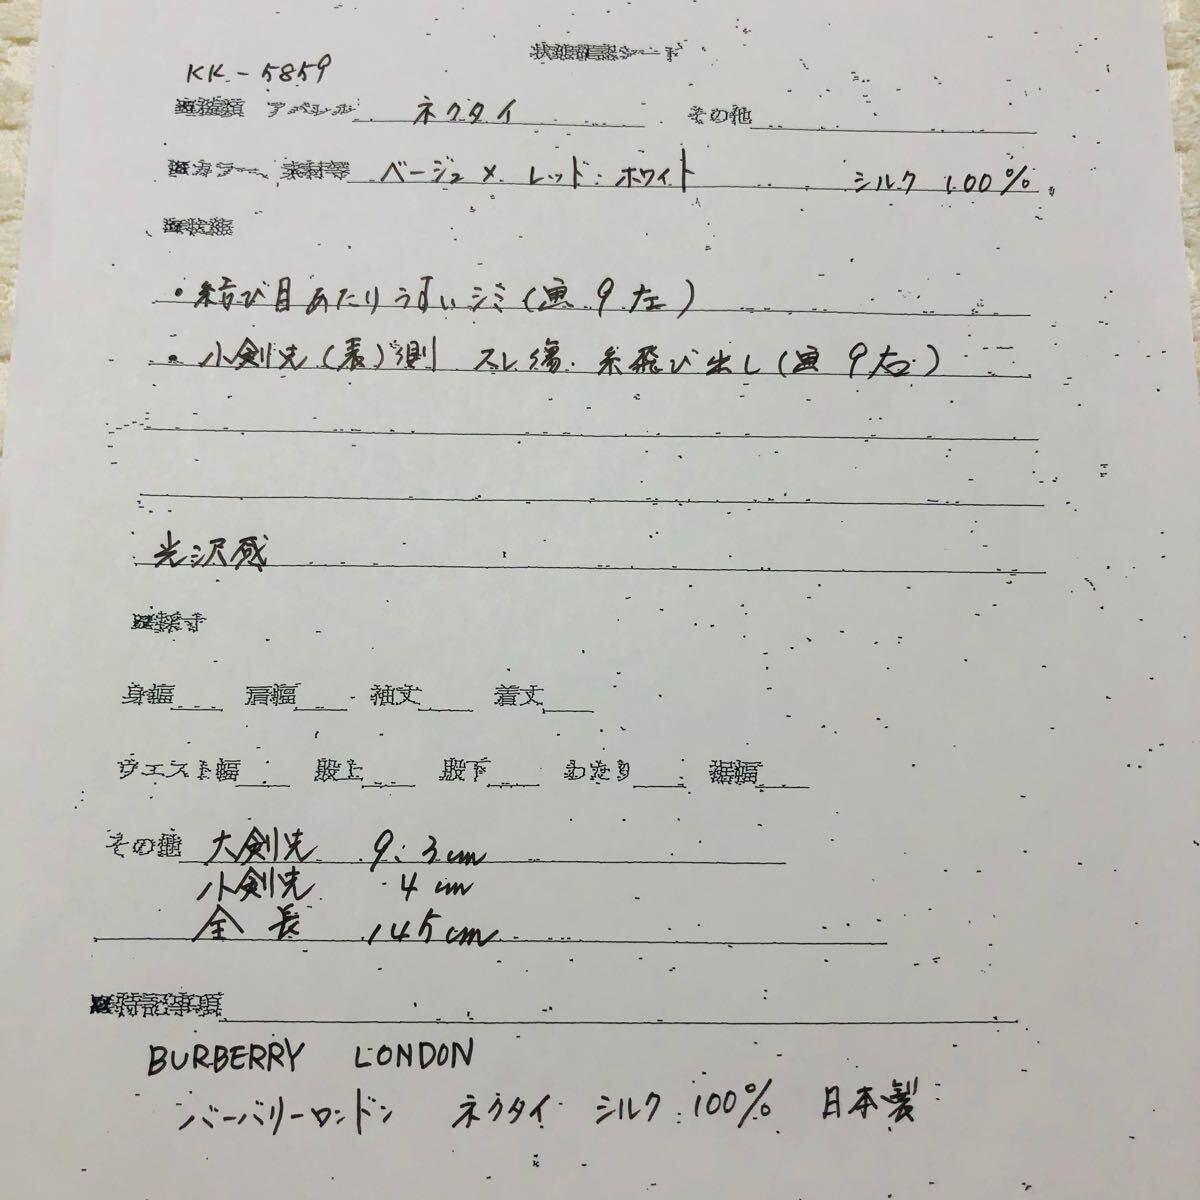 状態確認シート
KK-5859
■種類 アパレル ネクタイ その他
■カラー、素材等 ベージュ × レッド・ホワイト シルク 100%
■状態
・結び目あたりうすいシミ(画9左)
・小剣先(表)側 スレ傷・糸飛び出し(画9右)
光沢感
■採寸
身幅 肩幅 袖丈 着丈
ウエスト幅 股上 股下 わたり 裾幅
その他 大剣先 9.3cm
小剣先 4cm
全長 145cm
■特記事項
BURBERRY LONDON
バーバリーロンドン ネクタイ シルク 100% 日本製